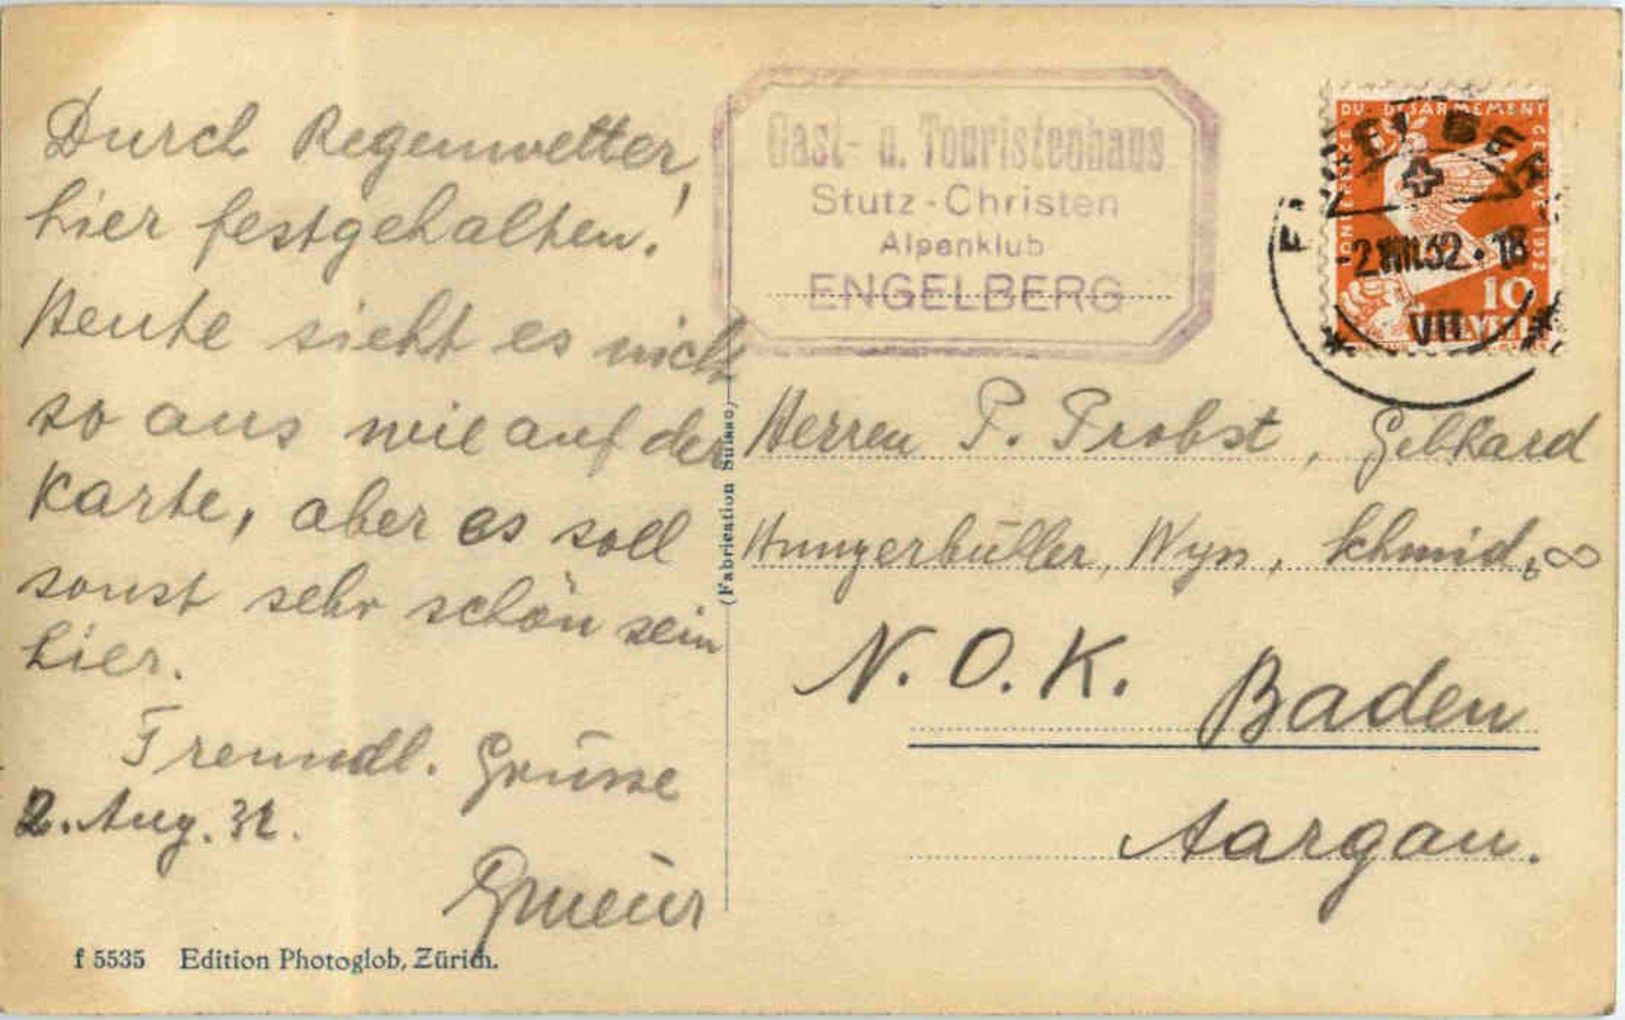 Durch Regenwetter,
hier festgehalten!
Heute sieht es nicht
so aus wie auf der
Karte, aber es soll
sonst sehr schön sein
hier.
Freundl. Grüsse
2. Aug. 32.
f 5535 Edition Photoglob, Zürich.
(Fabrication Suisse)
Gast- u. Touristenhaus
Stutz-Christen
Alpenklub
ENGELBERG
DU DÉSARMEMENT
GENÈVE 1932
ENGELBERG
2.VIII.32.18
VII
10
HELVETIA
Herren P. Probst, Gebhard
Hungerbühler, Wyss, Schmid,
N.O.K. Baden
Aargau.